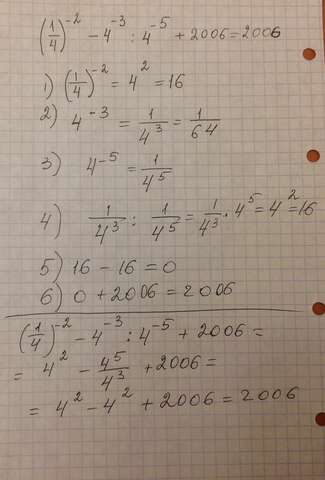 (1/4)⁻² - 4⁻³ : 4⁻⁵ + 2006 = 2006
1) (1/4)⁻² = 4² = 16
2) 4⁻³ = 1/4³ = 1/64
3) 4⁻⁵ = 1/4⁵
4) 1/4³ : 1/4⁵ = 1/4³ · 4⁵ = 4² = 16
5) 16 - 16 = 0
6) 0 + 2006 = 2006
(1/4)⁻² - 4⁻³ : 4⁻⁵ + 2006 =
= 4² - 4⁵/4³ + 2006 =
= 4² - 4² + 2006 = 2006